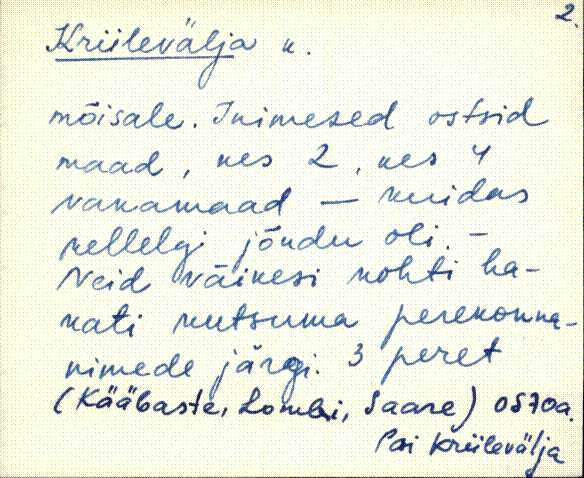 2.
Kriilevälja k.
mõisale. Inimesed ostsid
maad, kes 2, kes 4
vakamaad – kuidas
kellelgi jõudu oli. –
Neid väikesi kohti ha-
kati kutsuma perekonna-
nimede järgi. 3 peret
(Kääbaste, Lombi, Saare) ostsid
Kriilevälja